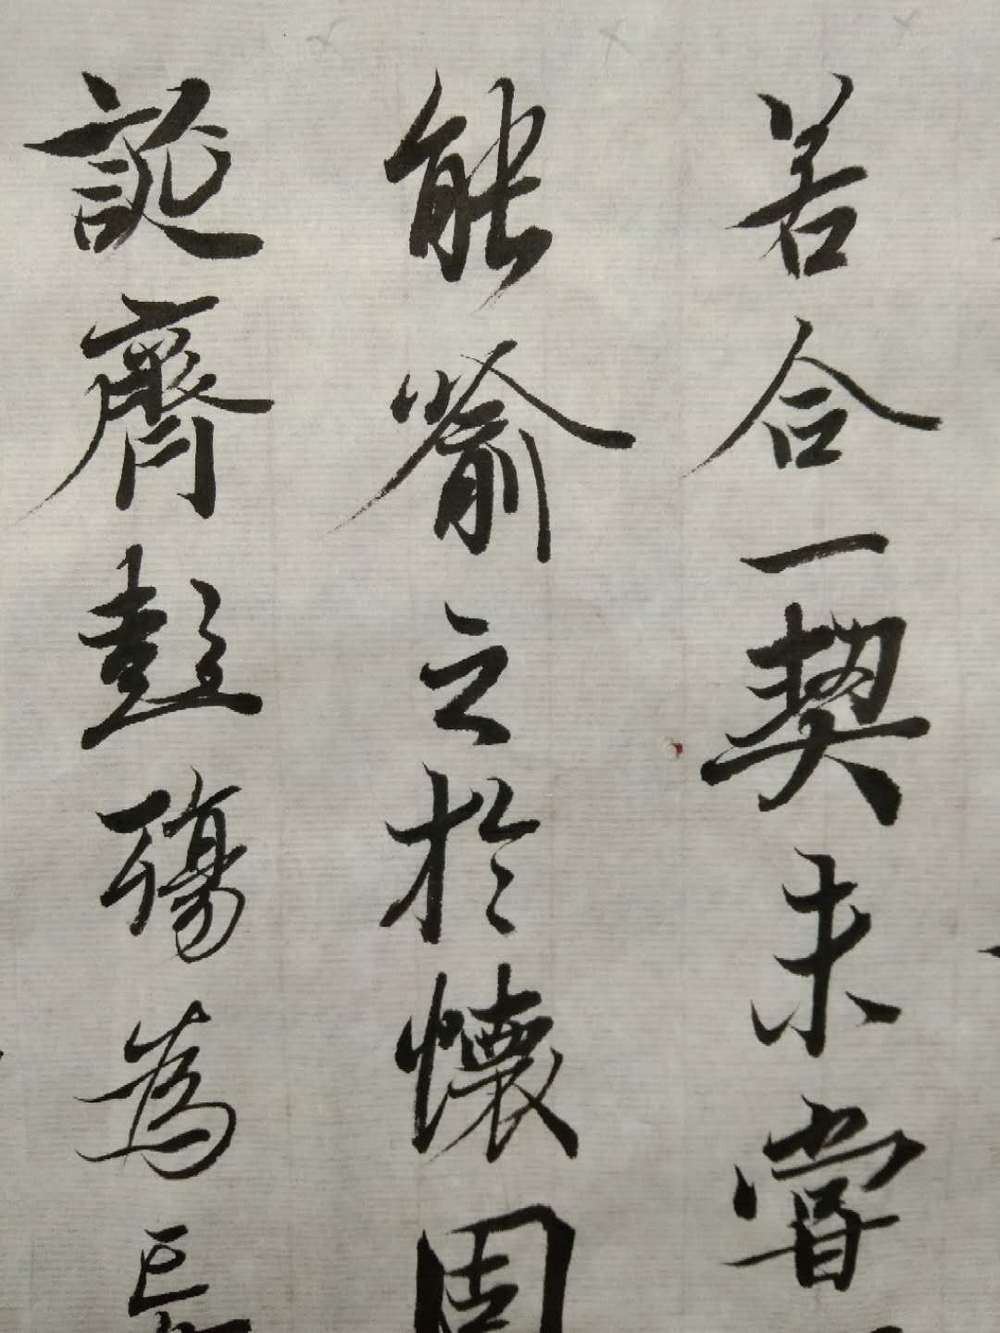 若合一契未嘗
能喻之於懷固
誕齊彭殤為